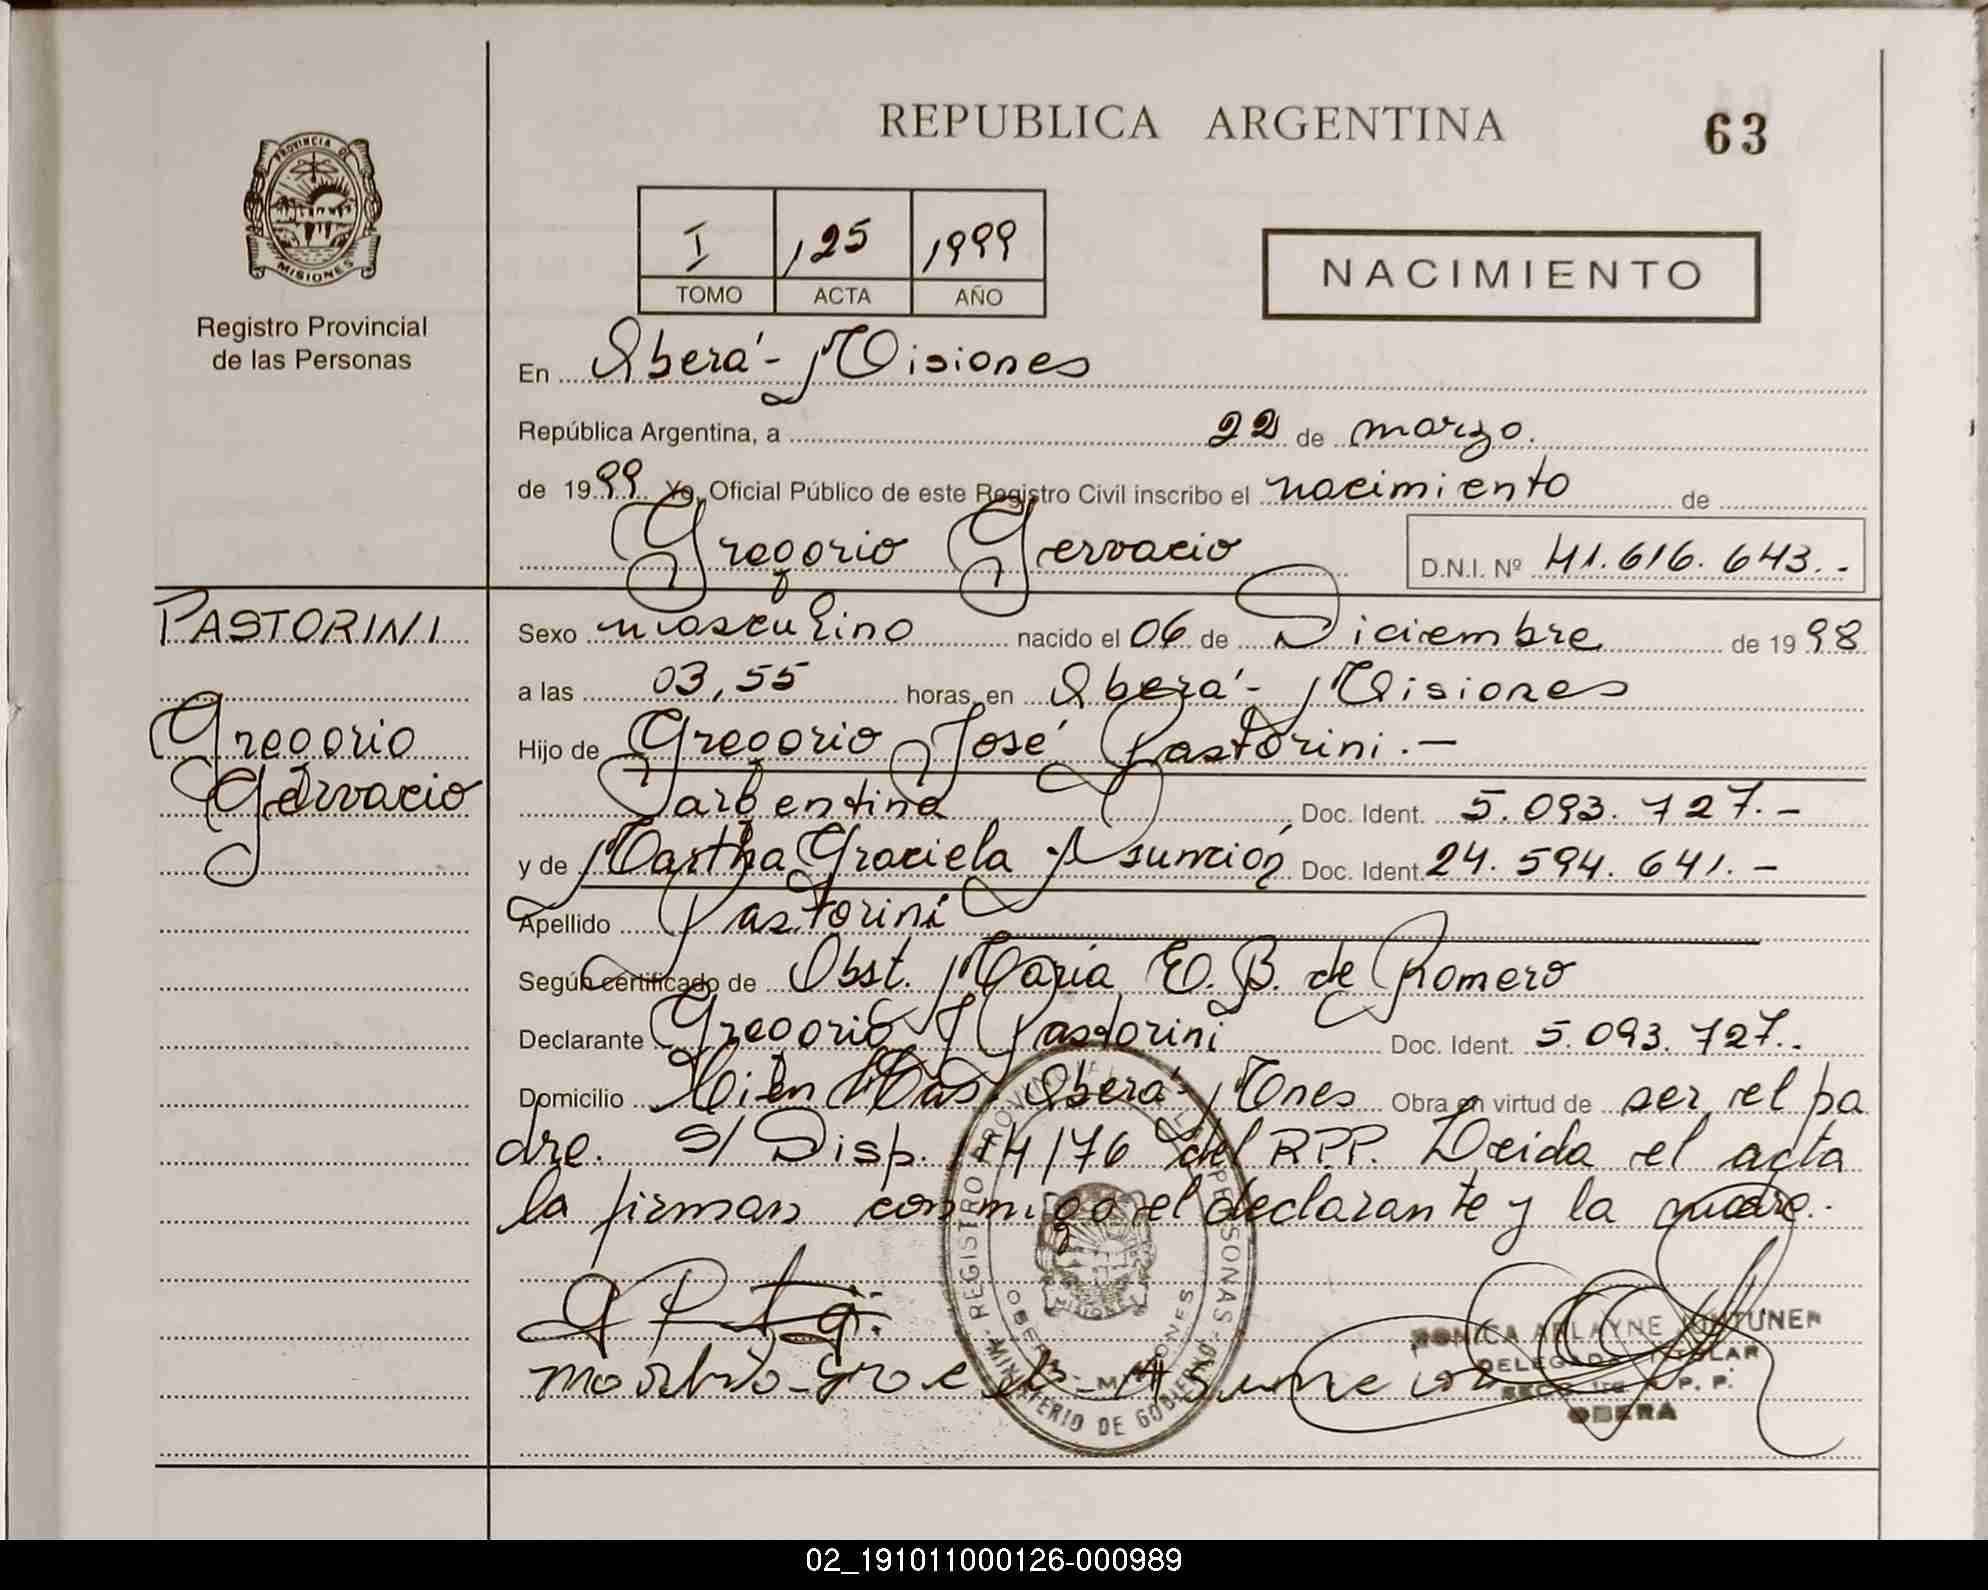 REPUBLICA ARGENTINA
63
PROVINCIA DE
MISIONES
Registro Provincial
de las Personas
I 125 1999
TOMO ACTA AÑO
NACIMIENTO
En Oberá - Misiones
República Argentina, a 22 de marzo.
de 1999 Yo, Oficial Público de este Registro Civil inscribo el nacimiento de
Gregorio Gervacio
D.N.I. Nº 41.616.643.-
PASTORINI
Gregorio
Gervacio
Sexo masculino nacido el 06 de Diciembre de 1998
a las 03,55 horas, en Oberá - Misiones
Hijo de Gregorio José Pastorini.-
argentina Doc. Ident. 5.093.727.-
y de Martha Graciela Asunción Doc. Ident. 24.594.641.-
Apellido Pastorini
Según certificado de Obst. María E. B. de Romero
Declarante Gregorio J Pastorini Doc. Ident. 5.093.727..
Domicilio Oberá Mnes Obra en virtud de ser el pa
dre. s/ Disp. 14/76 del R.P.P. Leida el acta
la firman conmigo el declarante y la madre.
REGISTRO PROVINCIAL DE LAS PERSONAS
OBERÁ - MISIONES
MINISTERIO DE GOBIERNO
MISIONES
MONICA ARLAYNE
DELEGADA TITULAR
R. P. P.
OBERA
02_191011000126-000989